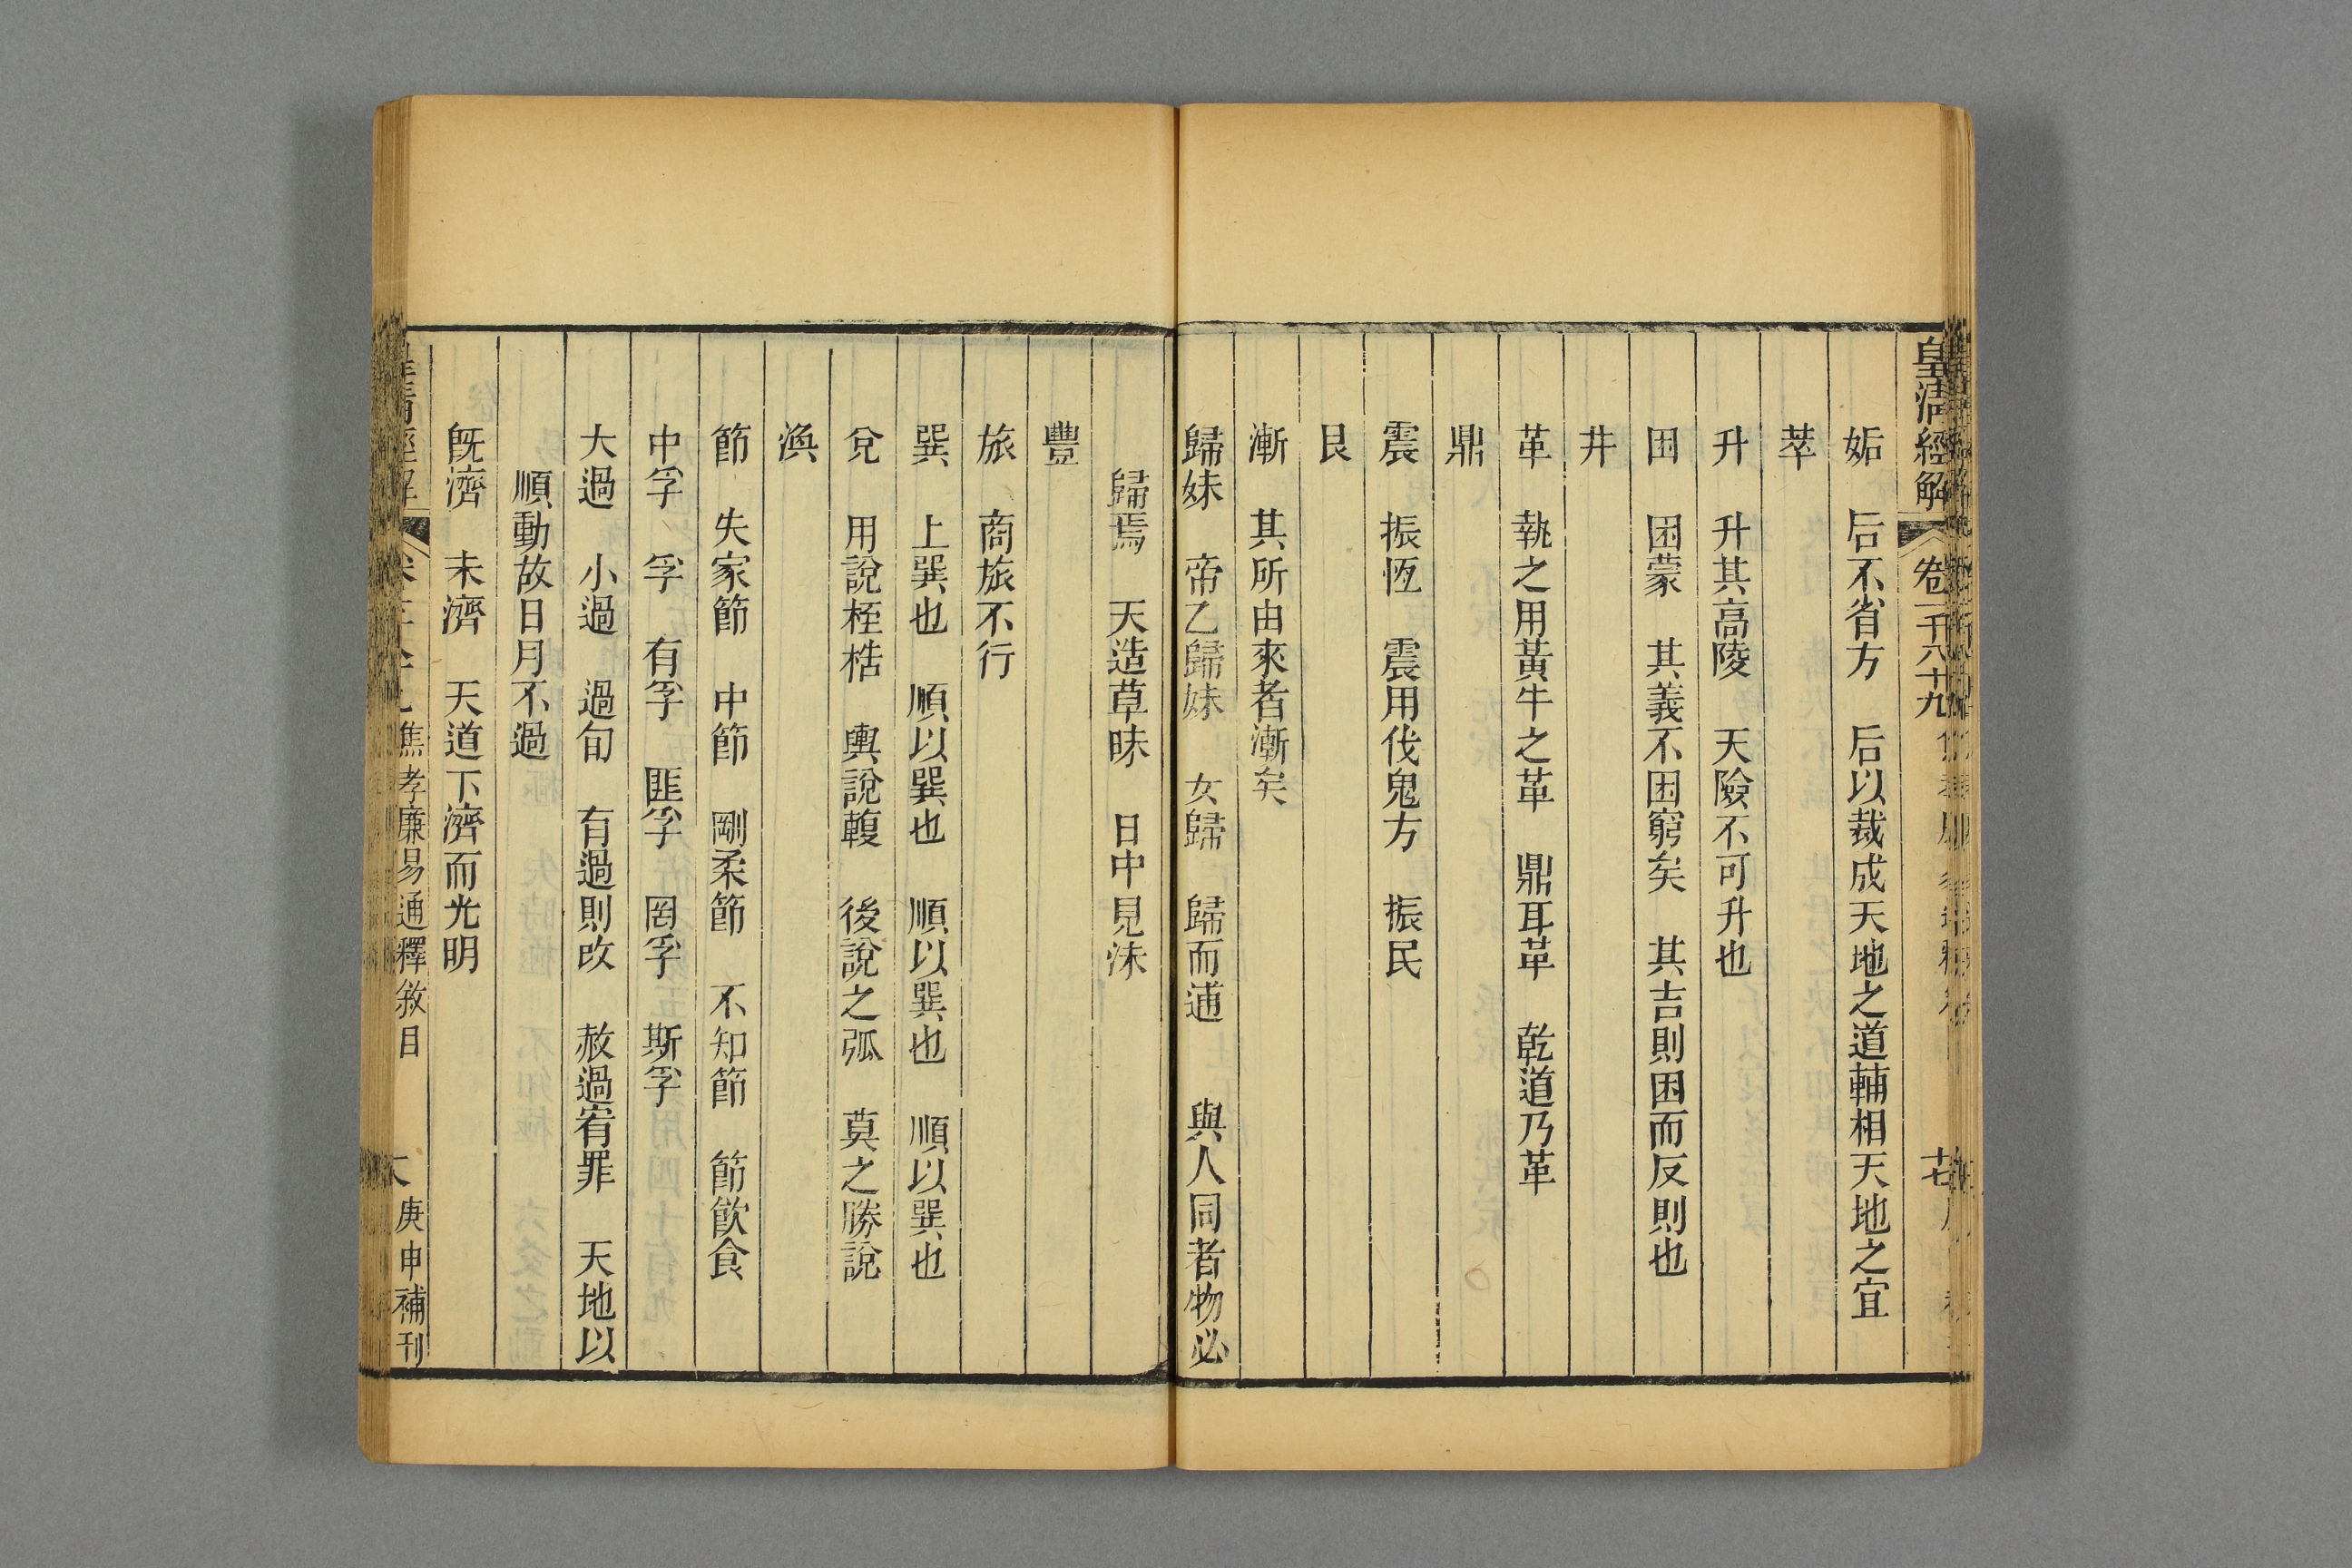 皇清經解 卷一千八十九 十七
姤 后不省方 后以裁成天地之道輔相天地之宜
萃
升 升其高陵 天險不可升也
困 困蒙 其義不困窮矣 其吉則困而反則也
井
革 執之用黃牛之革 鼎耳革 乾道乃革
鼎
震 振恆 震用伐鬼方 振民
艮
漸 其所由來者漸矣
歸妹 帝乙歸妹 女歸 歸而逋 與人同者物必
歸焉 天造草昧 日中見沬
豐
旅 商旅不行
巽 上巽也 順以巽也 順以巽也 順以巽也
兌 用說桎梏 輿說輹 後說之弧 莫之勝說
渙
節 失家節 中節 剛柔節 不知節 節飲食
中孚 孚 有孚 匪孚 罔孚 斯孚
大過 小過 過旬 有過則改 赦過宥罪 天地以
順動故日月不過
旣濟 未濟 天道下濟而光明
清經解 焦孝廉易通釋敘目 庚申補刊